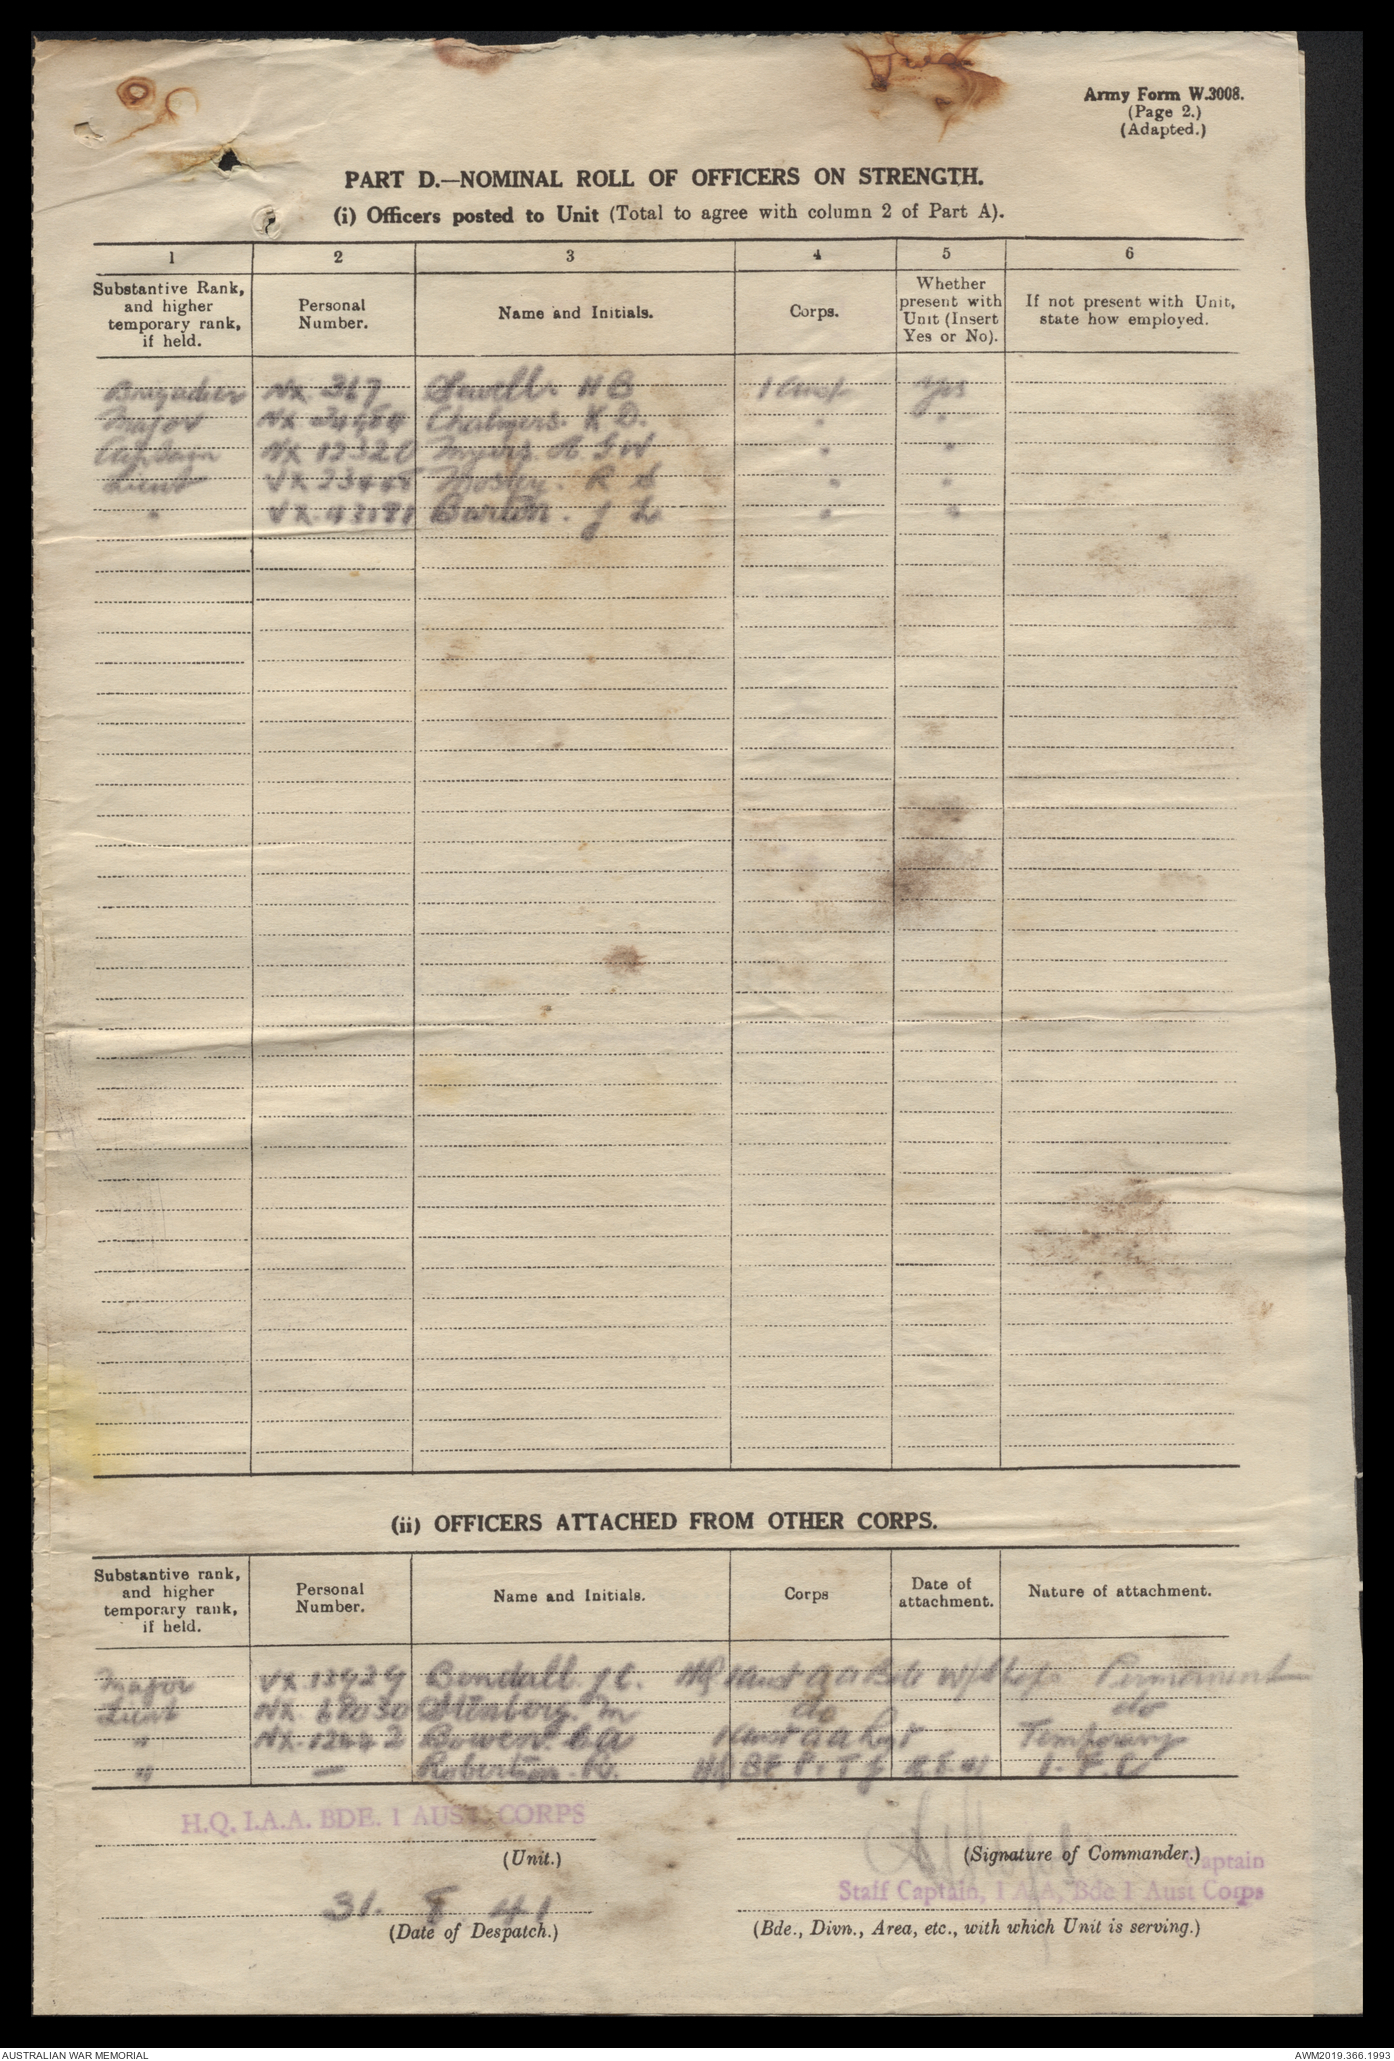 Army Form W.3008.
(Page 2.)
(Adapted.)
PART D.—NOMINAL ROLL OF OFFICERS ON STRENGTH.
(i) Officers posted to Unit (Total to agree with column 2 of Part A).
1 2 3 4 5 6
Substantive Rank, and higher temporary rank, if held. Personal Number. Name and Initials. Corps. Whether present with Unit (Insert Yes or No). If not present with Unit, state how employed.
Brigadier NX 367 Sewell. H B 1 Aust Yes
Major NX 34484 Chalmers. K D. " "
Captain NX 12320 R G W " "
Lieut R S " "
" VX 43181 J L " "
(ii) OFFICERS ATTACHED FROM OTHER CORPS.
Substantive rank, and higher temporary rank, if held. Personal Number. Name and Initials. Corps Date of attachment. Nature of attachment.
Major VX 13929 Bendall. J C. HQ 1 Aust AA Bde W/Shops Permanent
Lieut M do do
" NX 12442 Bowen. 1 Aust AA Regt Temporary
" — Robertson. HQ
H.Q. 1.A.A. BDE. 1 AUST. CORPS
(Unit.)
(Signature of Commander.)
Captain
Staff Captain, 1 A.A. Bde 1 Aust Corps
31. 8 41
(Date of Despatch.)
(Bde., Divn., Area, etc., with which Unit is serving.)
AUSTRALIAN WAR MEMORIAL
AWM2019.366.1993